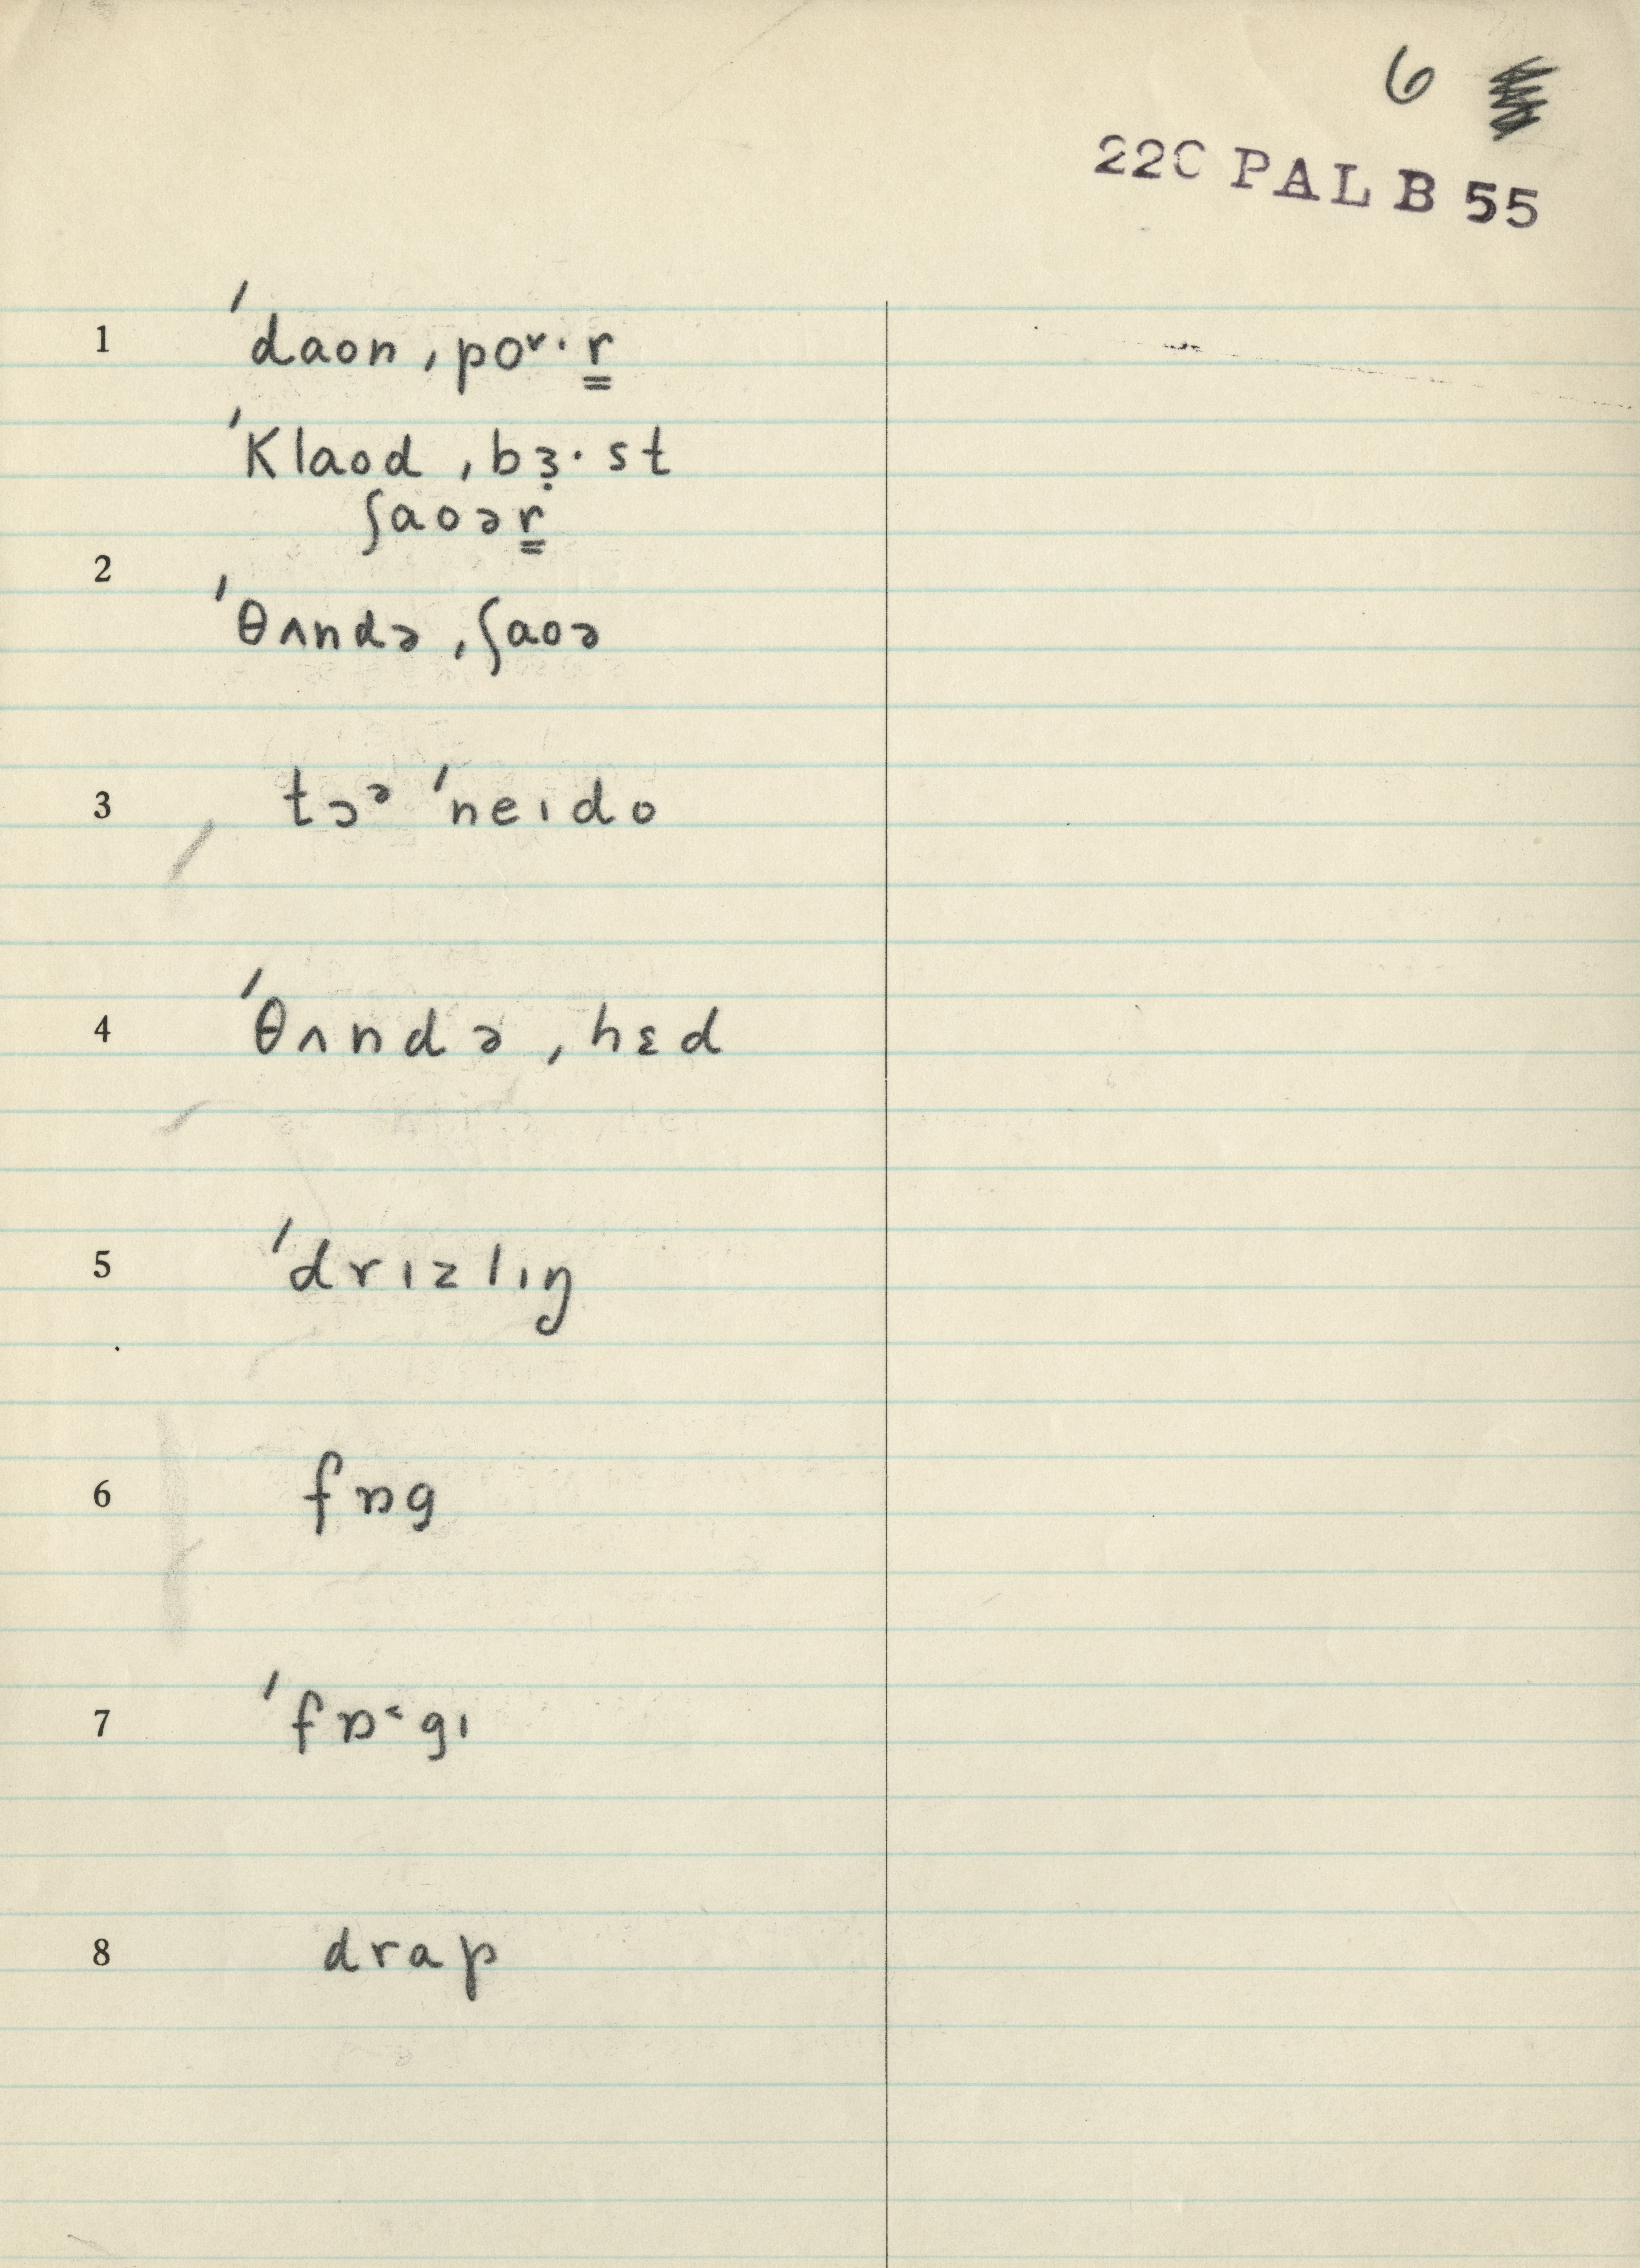 6
22C PAL B 55
1 ˈdaon ˌpoᵛ·r̳
ˈKlaod ˌbɜ̣·st
ʃaoər̳
2
ˈθʌndə ˌʃaoə
3 tɔᵊ ˈneɪdo
4 ˈθʌndə ˌhɛd
5 ˈdrɪzlɪŋ
6 fɒg
7 ˈfɒ˂gɪ
8 drap